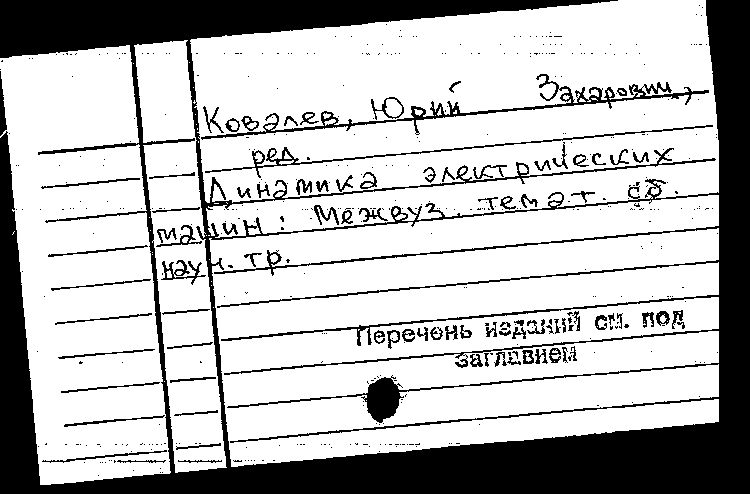 Ковалев, Юрий Захарович,
ред.
Динамика электрических
машин: Межвуз. темат. сб.
науч. тр.
Перечень изданий см. под
заглавием